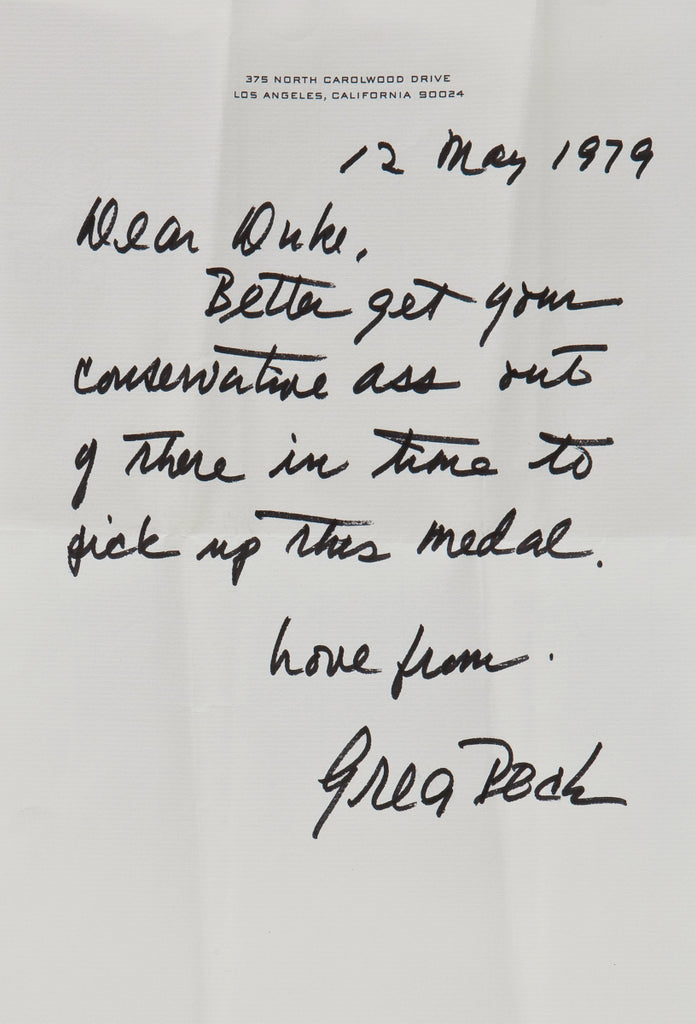 375 NORTH CAROLWOOD DRIVE
LOS ANGELES, CALIFORNIA 90024
12 May 1979
Dear Duke,
Better get your
conservative ass out
of there in time to
pick up this medal.
Love from.
Greg Peck